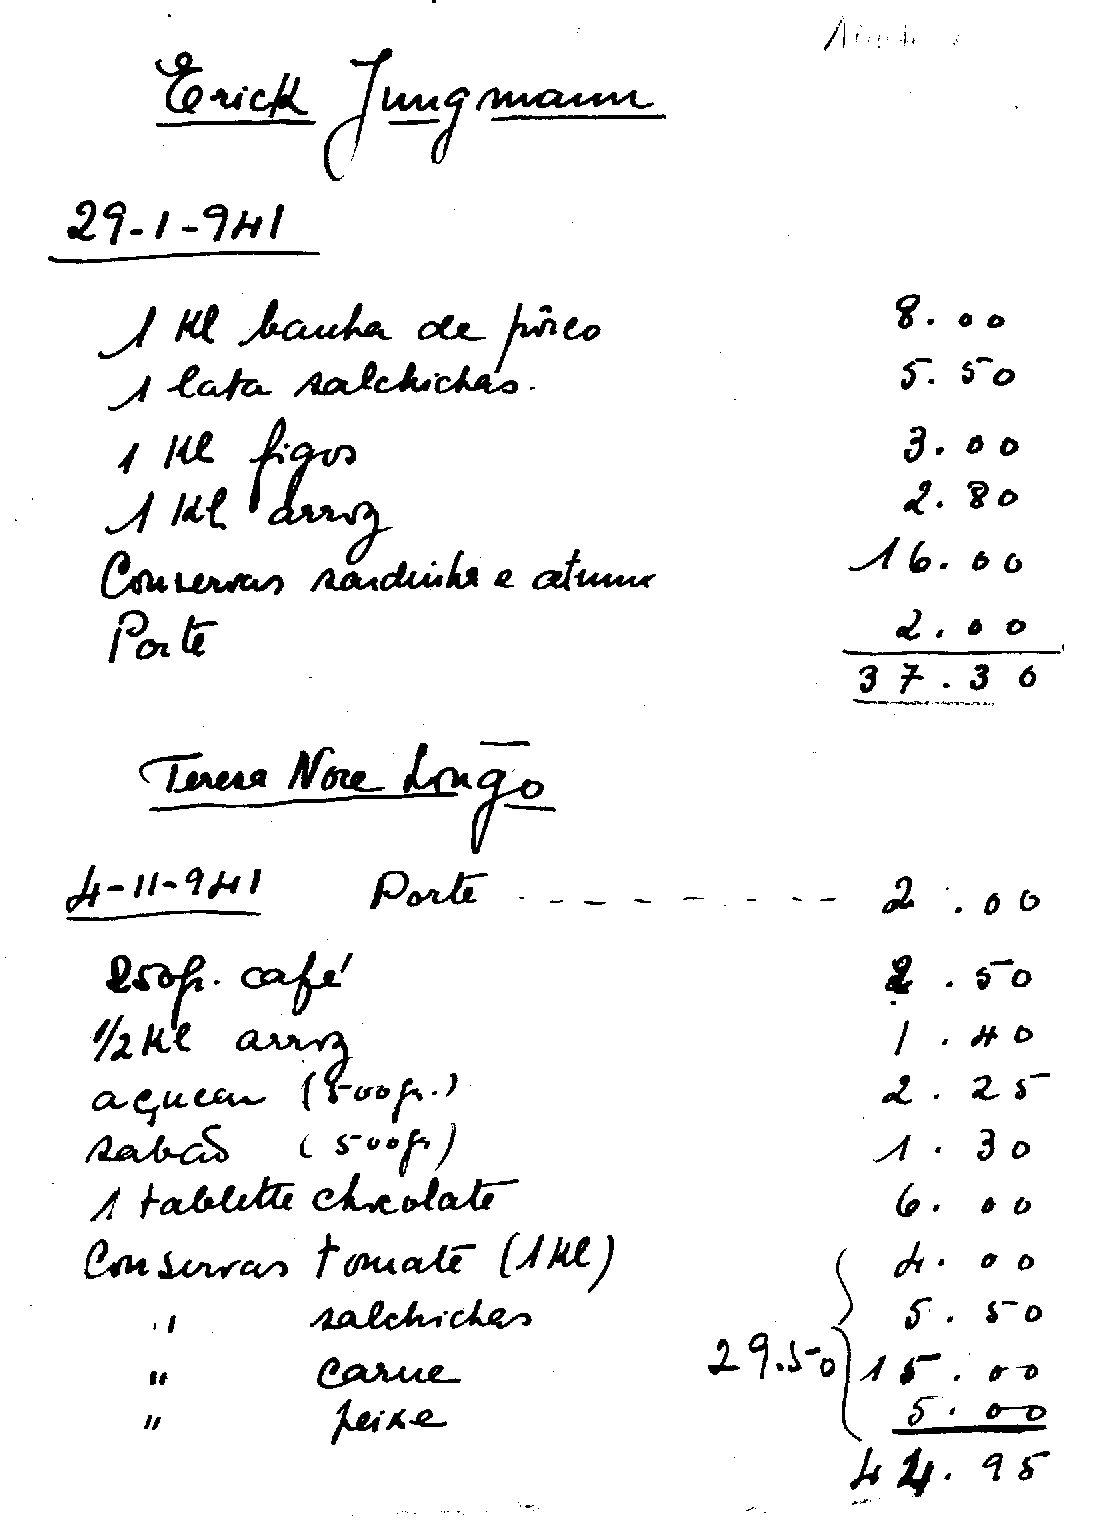 Erick Jungmann
29-1-941
1 Kl banha de pôrco 8.00
1 lata salchichas. 5.50
1 Kl figos 3.00
1 Kl arroz 2.80
Conservas sardinha e atum 16.00
Porte 2.00
37.30
Teresa Noce Longo
4-11-941 Porte --------- 2.00
250gr. café 2.50
1/2 Kl arroz 1.40
açucar (500gr.) 2.25
sabão (500gr) 1.30
1 tablette chocolate 6.00
Conservas tomate (1Kl) 4.00
" salchichas 5.50
" carne 29.50 15.00
" peixe 5.00
44.95